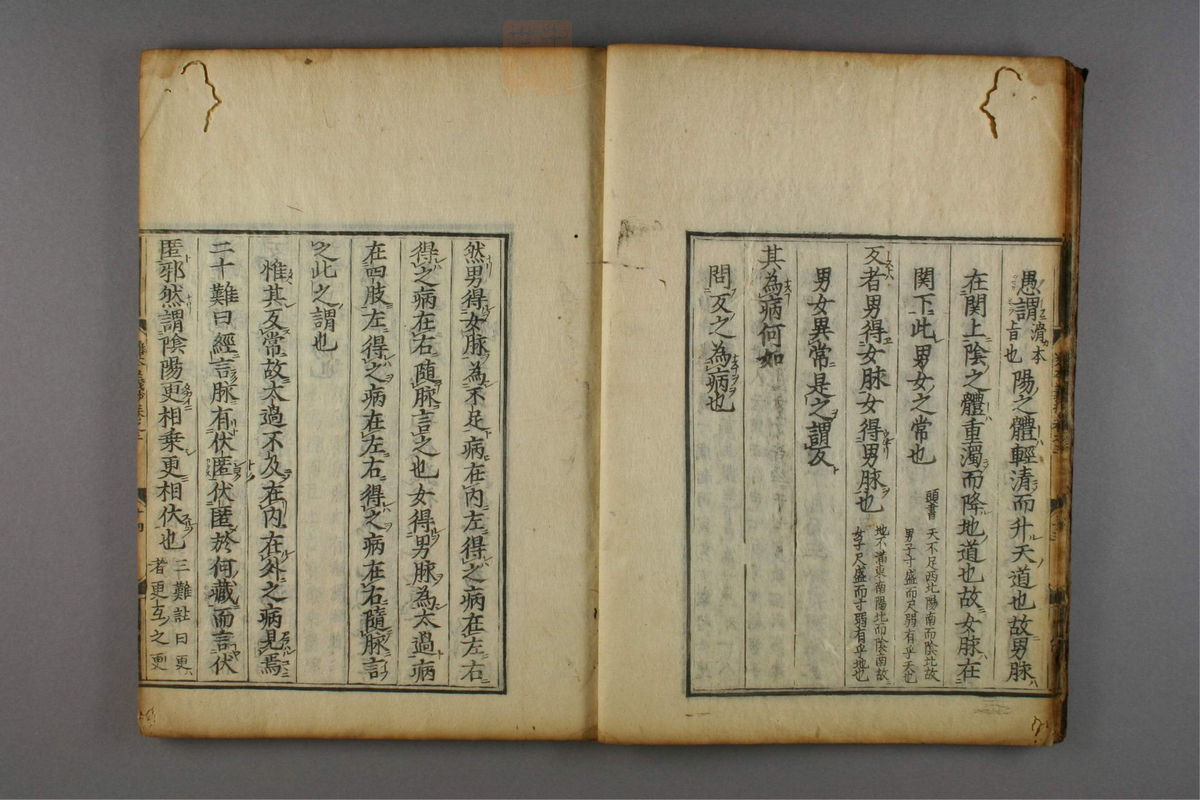 愚謂滑本旨也陽之體輕清而升天道也故男脉
在関上陰之體重濁而降地道也故女脉在
関下此男女之常也頭書天不足西北陽南而陰北故男子寸盛而尺弱有乎天也
反者男得女脉女得男脉也地不滿東南陽北而陰南故女子尺盛而寸弱有乎地也
男女異常是之謂反
其為病何如
問反之為病也
然男得女脉為不足病在内左得之病在左右
得之病在右随脉言之也女得男脉為太過病
在四肢左得之病在左右得之病在右隨脉言
之此之謂也
惟其反常故太過不及在内在外之病見焉
二十難曰經言脉有伏匿伏匿於何藏而言伏
匿邪然謂陰陽更相乗更相伏也三難註曰更者更互之更